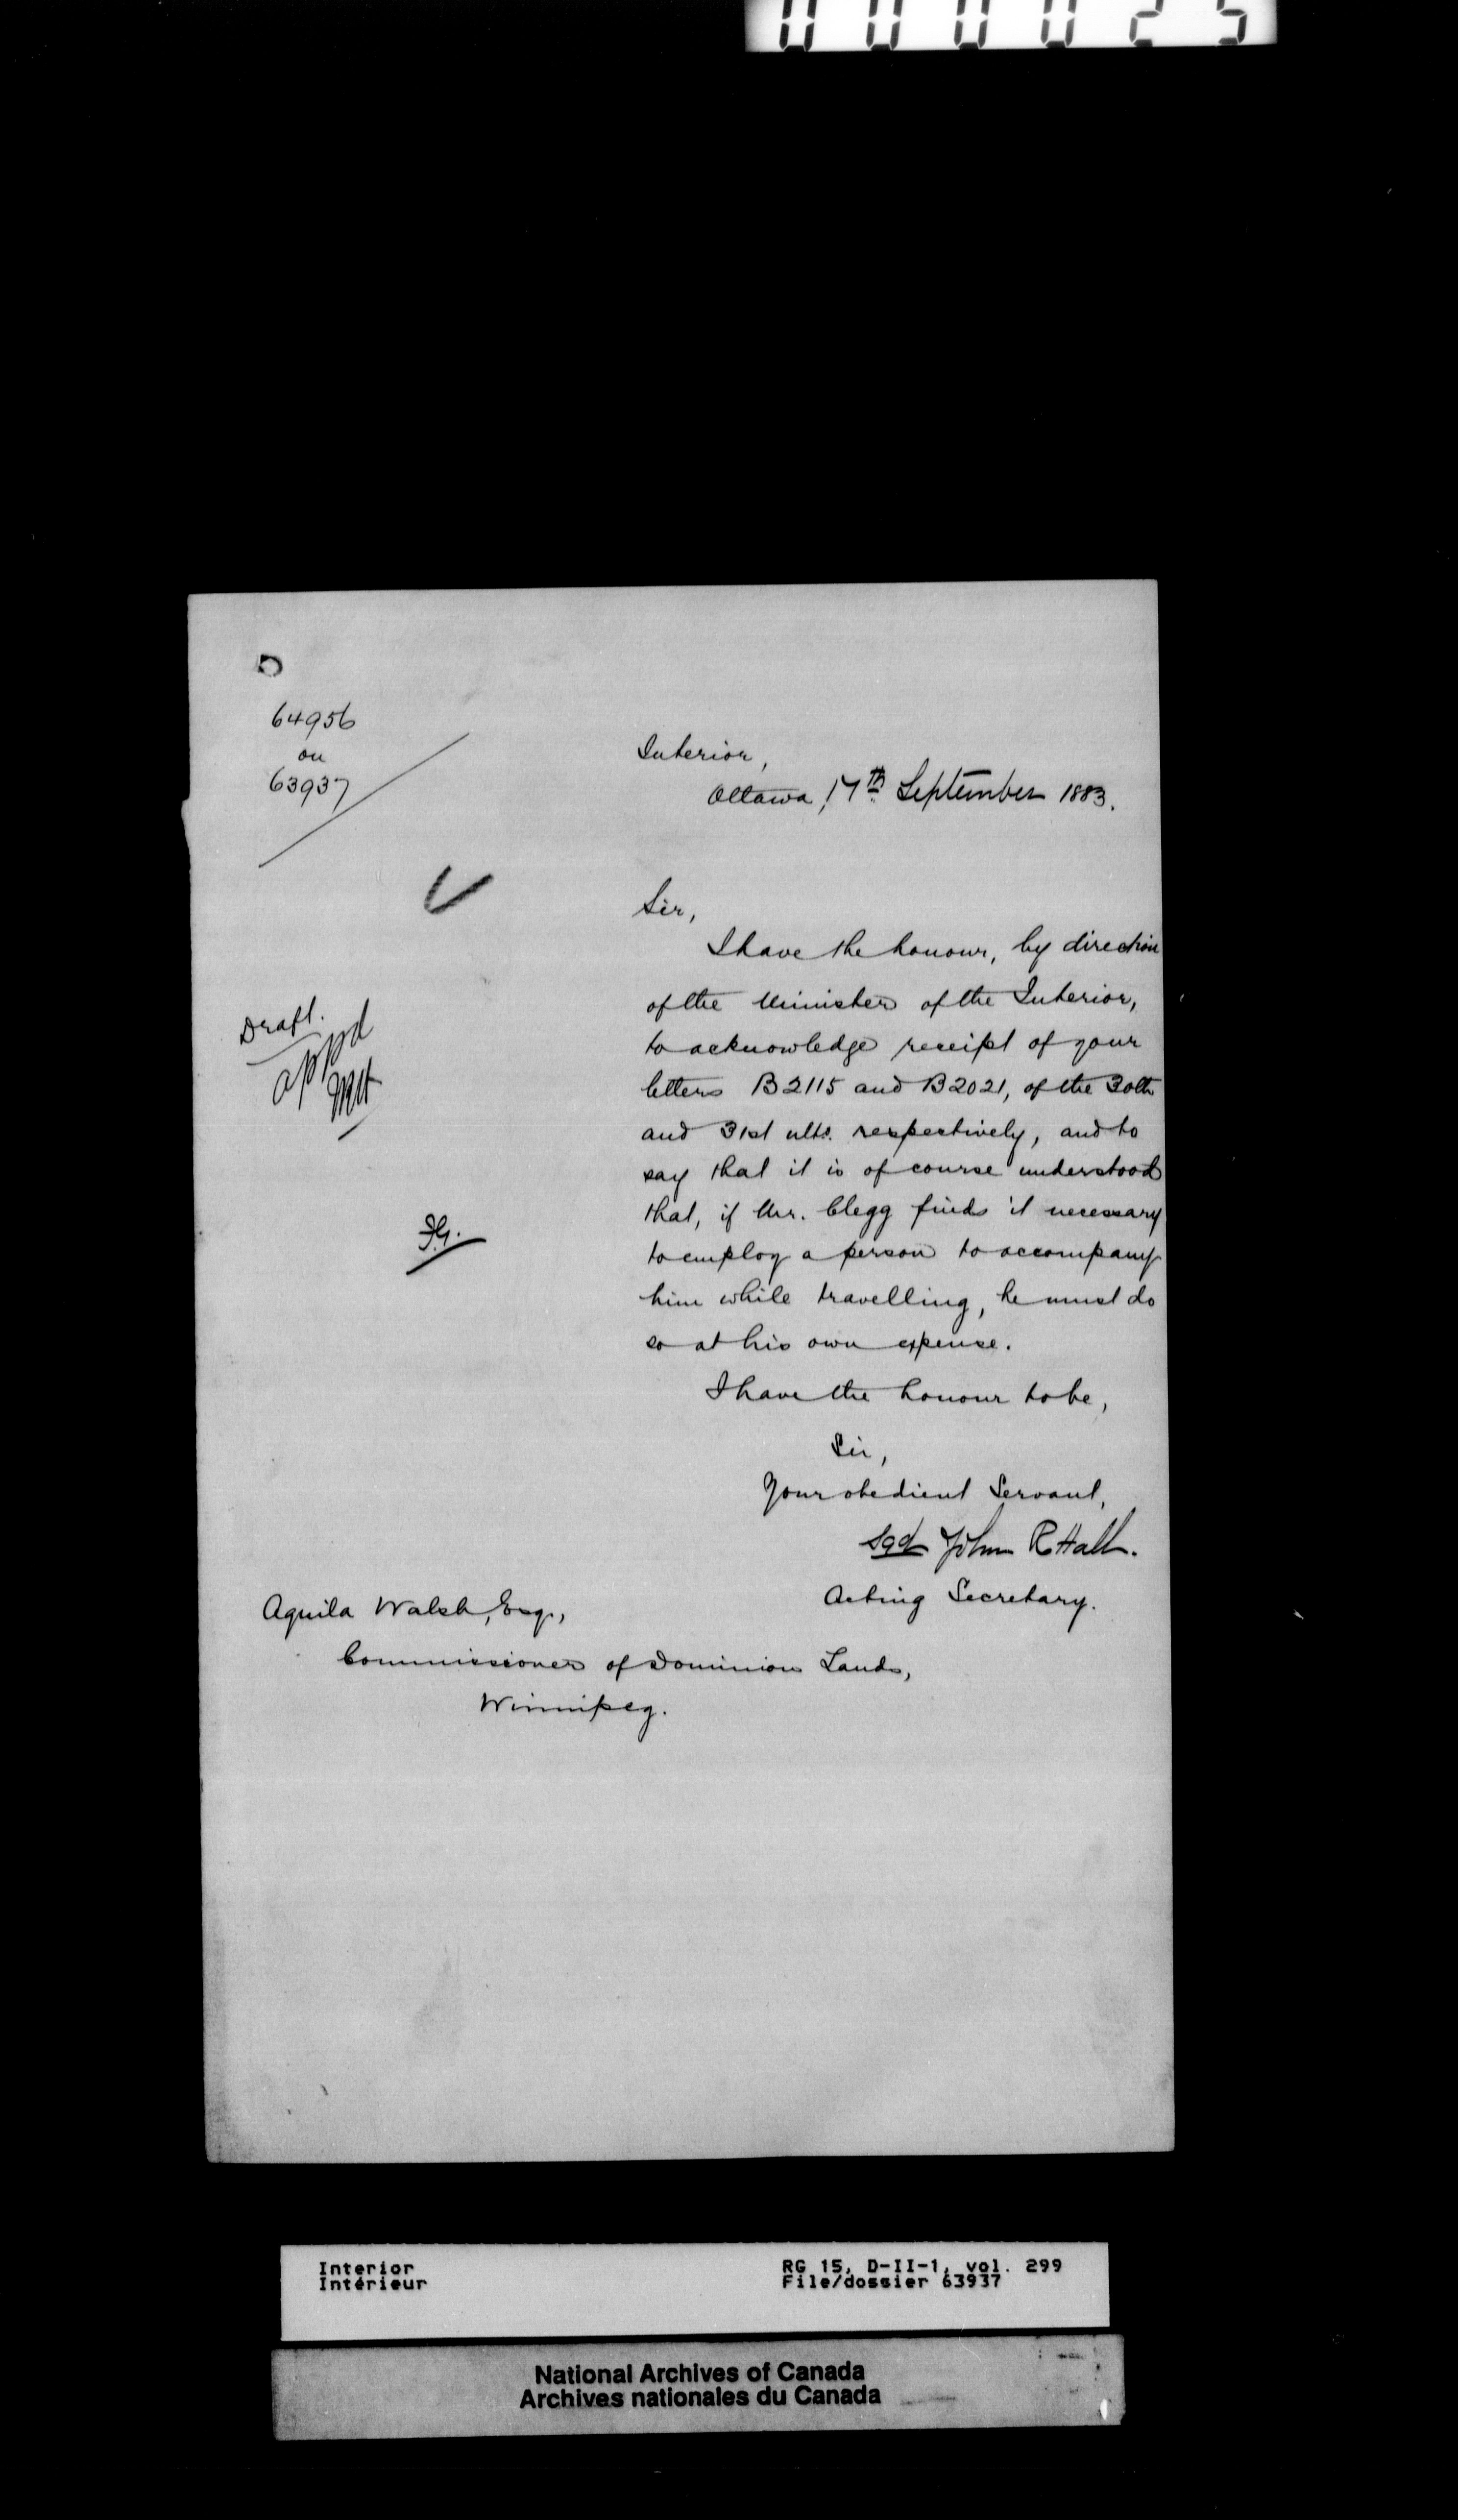 000025
64956
on
63937
Interior,
Ottawa, 17th September 1883.
Sir,
I have the honour, by direction
of the Minister of the Interior,
to acknowledge receipt of your
letters B2115 and B2021, of the 30th
and 31st ulto. respectively, and to
say that it is of course understood
that, if Mr. Clegg finds it necessary
to employ a person to accompany
him while travelling, he must do
so at his own expense.
Draft.
appd
I have the honour to be,
Sir,
Your obedient Servant,
sgd John R Hall.
Acting Secretary.
Aquila Walsh, Esq.,
Commissioner of Dominion Lands,
Winnipeg.
Interior
Intérieur
RG 15, D-II-1, vol. 299
File/dossier 63937
National Archives of Canada
Archives nationales du Canada